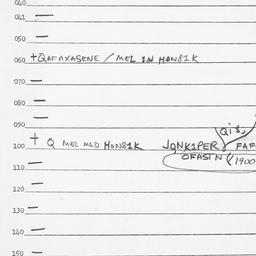 040
041
050
060 +QAFAXASENE / MEL IN HONS1K
070
080
090
Qis,
100 + Q MEL MID HONS1K JQNK1PER FAF
OFASIN (1900
110
120
130
140
150